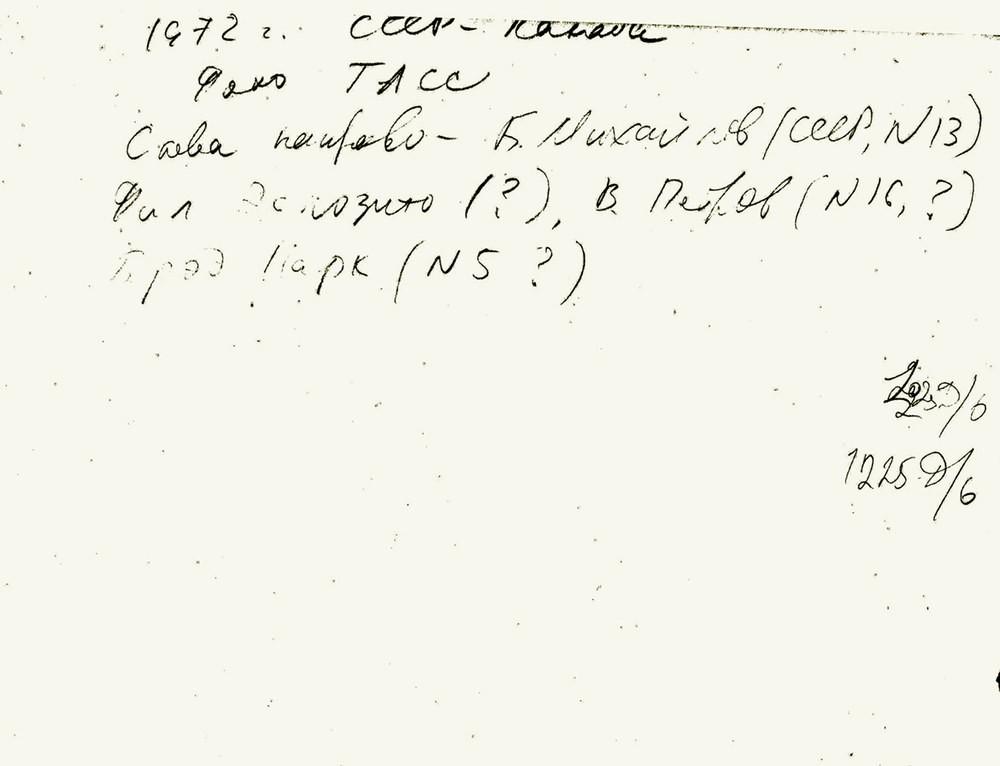 1972 г. СССР - Канада
Фото ТАСС
Слева направо - Б. Михайлов (СССР, N13)
Фил Эспозито (?), В. Петров (N16, ?)
Брэд Парк (N5 ?)
1225Д/6